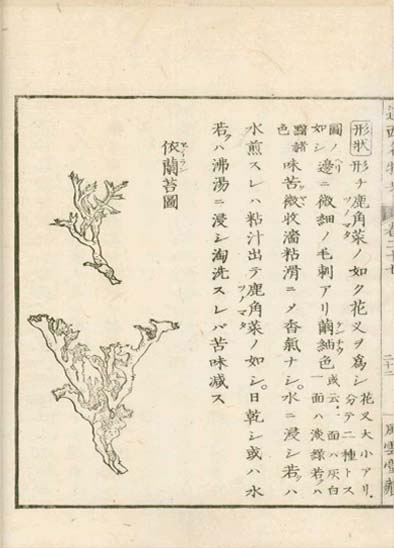 卷二十七 二十三 風雲堂藏
形状 形チ鹿角菜ノ如ク花叉ヲ爲シ 花叉大小アリ、分テ二種トス
圖ノ如シ 邊ニ微細ノ毛刺アリ繭紬色 或云、一面ハ灰白一面ハ淡緑若クハ
色 味苦微收濇粘滑ニメ香氣ナシ。水ニ浸シ若クハ
水煎スレハ粘汁出テ鹿角菜ノ如シ。日乾シ或ハ水
若クハ沸湯ニ浸シ淘洗スレバ苦味减ス
依蘭苔圖